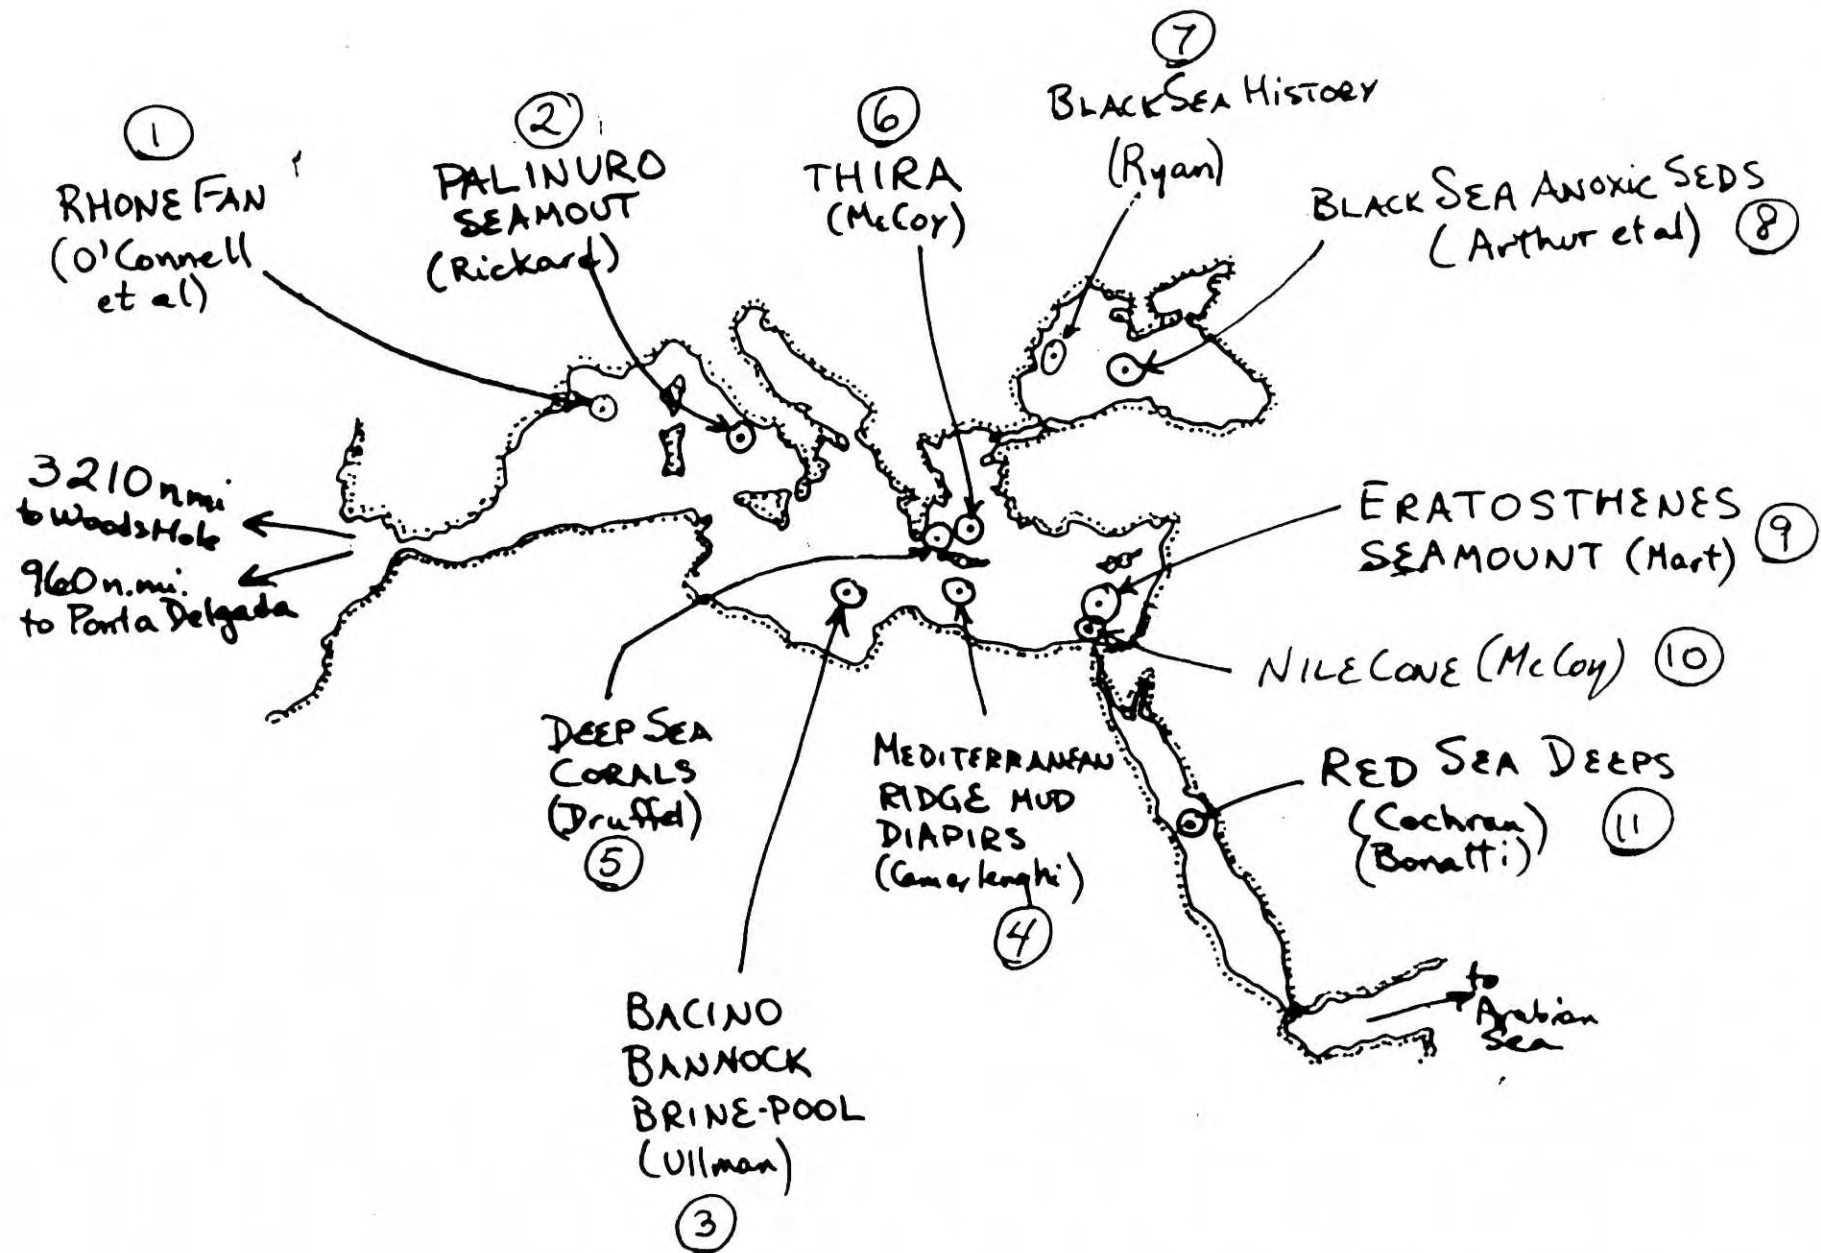 1
RHONE FAN
(O'Connell
et al)
2
PALINURO
SEAMOUT
(Rickard)
6
THIRA
(McCoy)
7
BLACK SEA HISTORY
(Ryan)
BLACK SEA ANOXIC SEDS
(Arthur et al) 8
3210 n mi
to Woods Hole
960 n.mi.
to Ponta Delgada
ERATOSTHENES
SEAMOUNT (Mart) 9
NILE CONE (McCoy) 10
DEEP SEA
CORALS
(Druffel)
5
MEDITERRANEAN
RIDGE MUD
DIAPIRS
(Camerlenghi)
4
RED SEA DEEPS
(Cochran)
(Bonatti)
11
BACINO
BANNOCK
BRINE-POOL
(Ullman)
3
to
Arabian
Sea